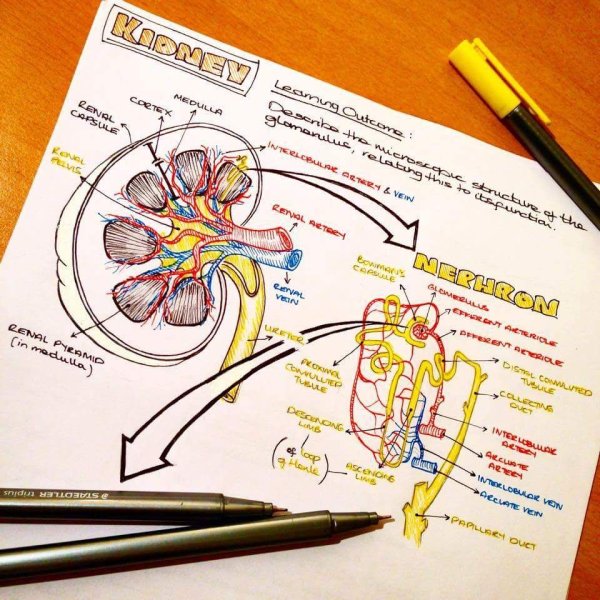 KIDNEY
Learning Outcome:
Describe the microscopic structure of the
glomerulus, relating this to its function.
RENAL
CAPSULE
CORTEX
MEDULLA
RENAL
PELVIS
INTERLOBULAR ARTERY & VEIN
RENAL ARTERY
RENAL
VEIN
URETER
RENAL PYRAMID
(in medulla)
NEPHRON
BOWMAN'S
CAPSULE
GLOMERULUS
EFFERENT ARTERIOLE
AFFERENT ARTERIOLE
DISTAL CONVOLUTED
TUBULE
COLLECTING
DUCT
PROXIMAL
CONVOLUTED
TUBULE
DESCENDING
LIMB
(of loop
of Henle)
ASCENDING
LIMB
INTERLOBULAR
ARTERY
ARCUATE
ARTERY
INTERLOBULAR VEIN
ARCUATE VEIN
PAPILLARY DUCT
STAEDTLER triplus